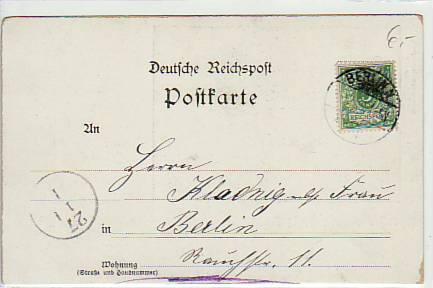 6.-
Deutsche Reichspost
Postkarte
BERLIN
5
REICHSPOST
An
Herrn
Kladnig nebst Frau
in Berlin
Rauchstr. 11.
Wohnung
(Straße und Hausnummer)
27
1
1